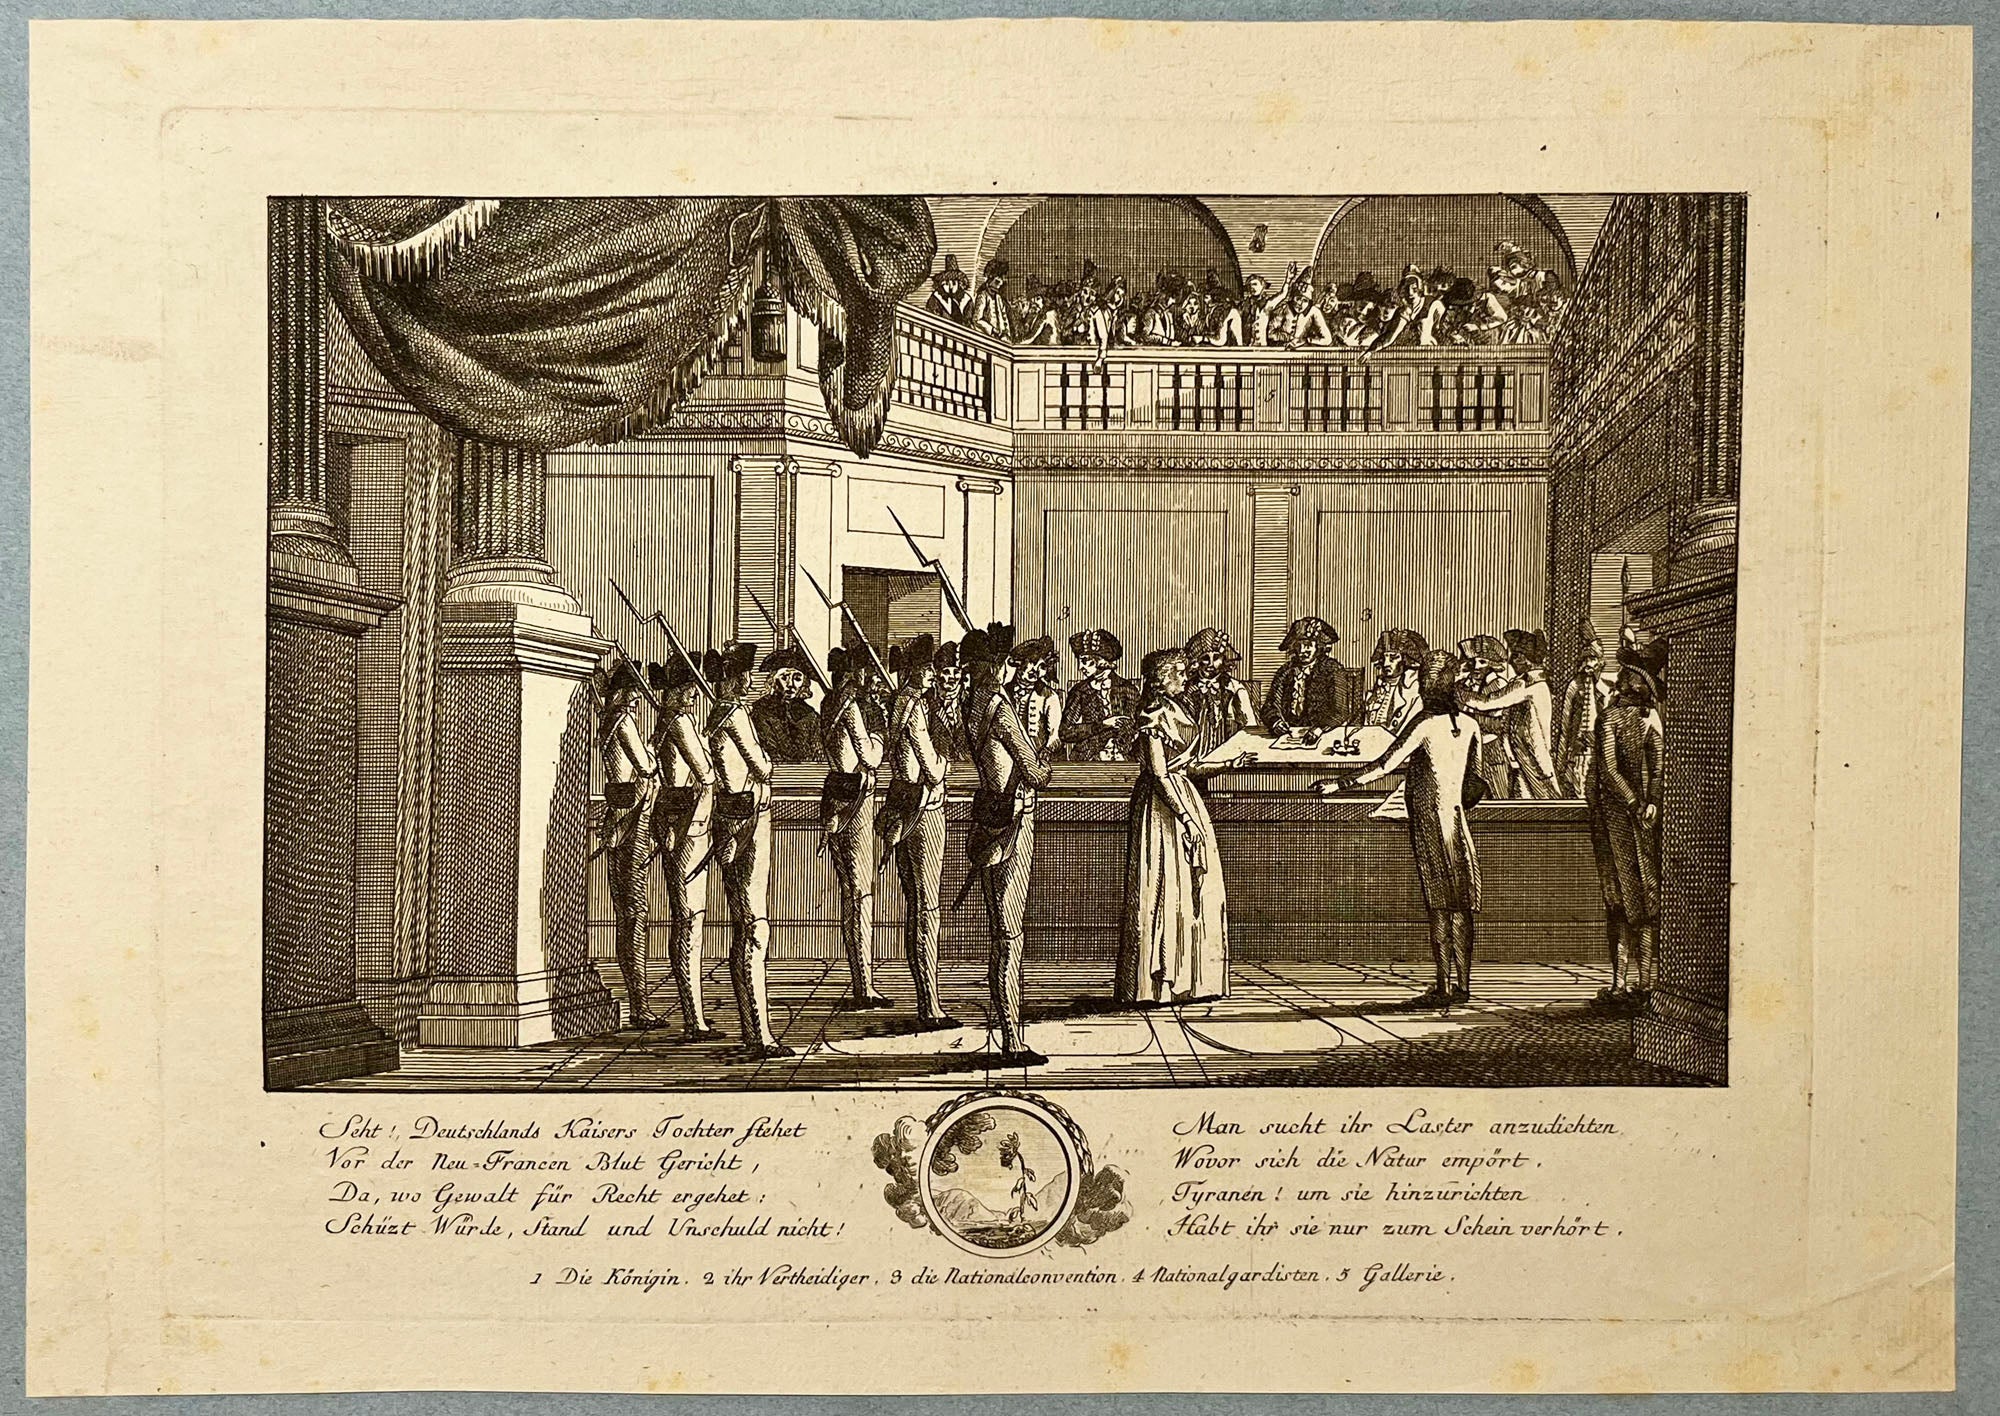 5
3
3
4
4
1
2
Seht!, Deutschlands Kaisers Tochter stehet
Vor der Neu=Francen Blut Gericht,
Da, wo Gewalt für Recht ergehet:
Schüzt Würde, Stand und Unschuld nicht!
Man sucht ihr Laster anzudichten
Wovor sich die Natur empört.
Tyranen! um sie hinzurichten
Habt ihr sie nur zum Schein verhört.
1 Die Königin. 2 ihr Vertheidiger. 3 die Nationalconvention. 4 Nationalgardisten. 5 Gallerie.